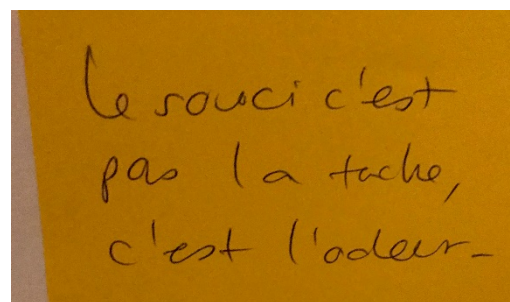 le souci c'est
pas la tache,
c'est l'odeur-